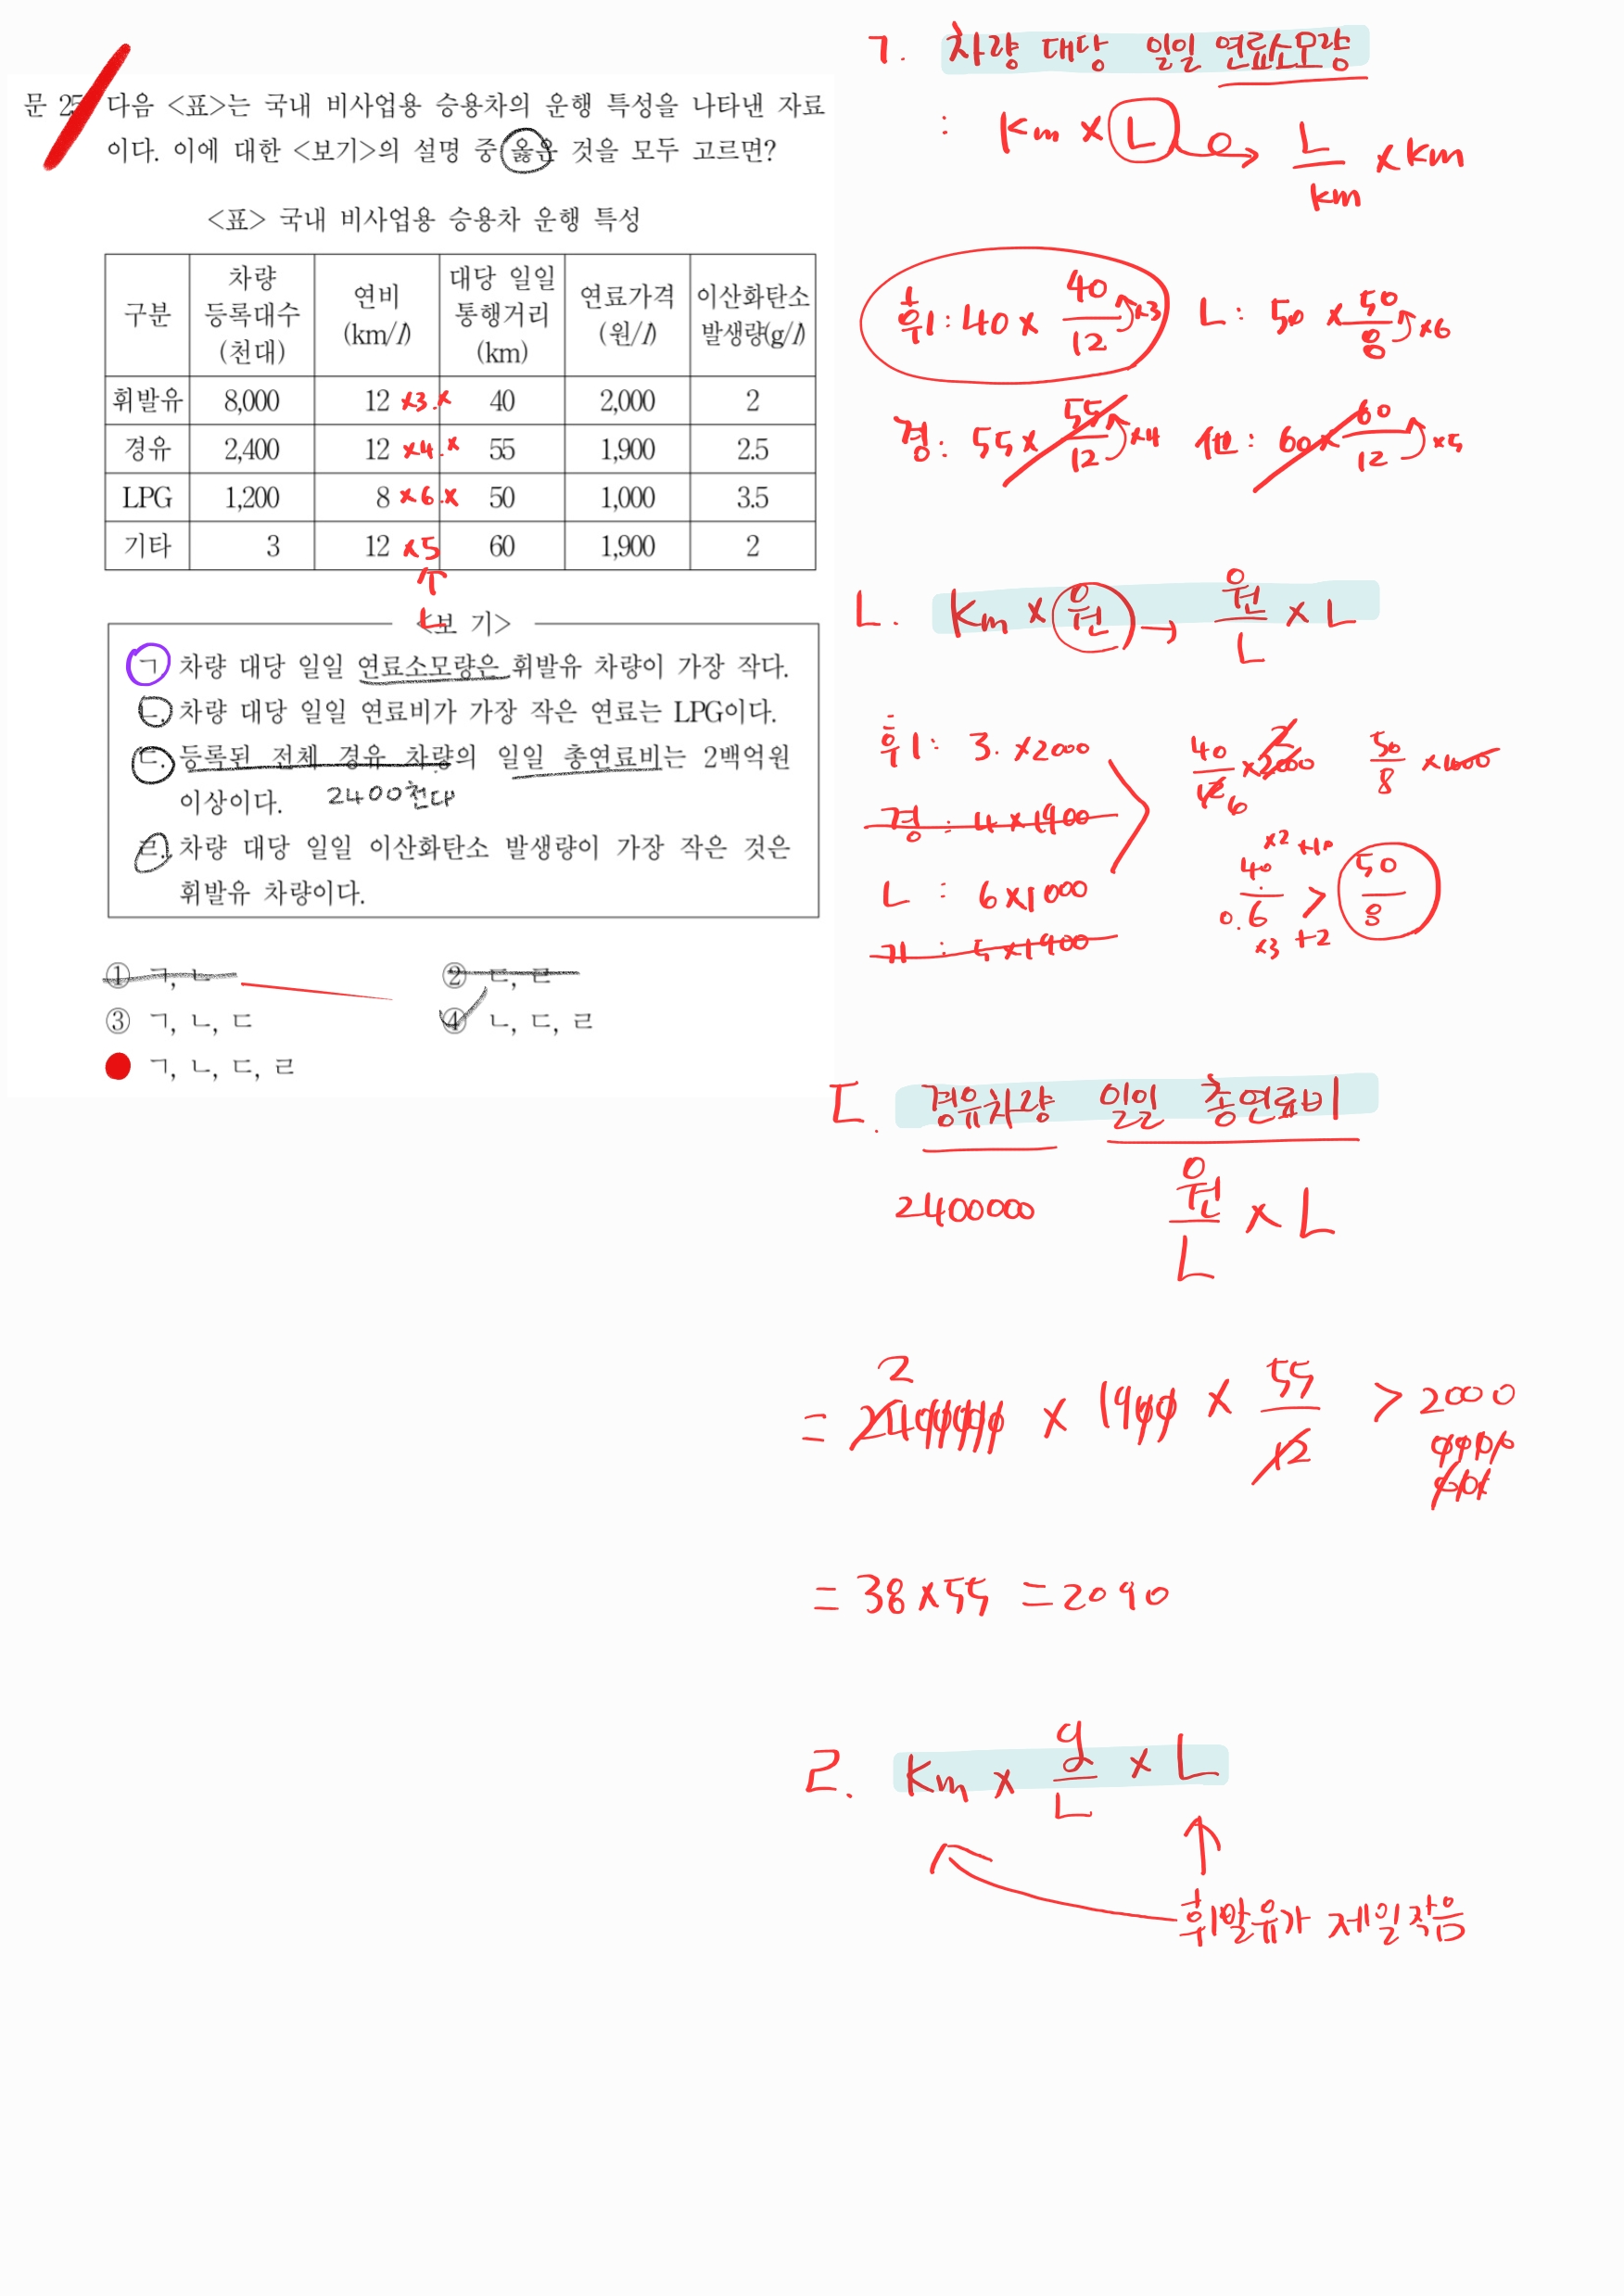 문 25. 다음 <표>는 국내 비사업용 승용차의 운행 특성을 나타낸 자료
이다. 이에 대한 <보기>의 설명 중 옳은 것을 모두 고르면?
<표> 국내 비사업용 승용차 운행 특성
구분 차량 등록대수 (천대) 연비 (km/l) 대당 일일 통행거리 (km) 연료가격 (원/l) 이산화탄소 발생량(g/l)
휘발유 8,000 12 ×3. × 40 2,000 2
경유 2,400 12 ×4. × 55 1,900 2.5
LPG 1,200 8 ×6. × 50 1,000 3.5
기타 3 12 ×5 60 1,900 2
↑
L
<보 기>
ㄱ 차량 대당 일일 연료소모량은 휘발유 차량이 가장 작다.
ㄴ. 차량 대당 일일 연료비가 가장 작은 연료는 LPG이다.
ㄷ. 등록된 전체 경유 차량의 일일 총연료비는 2백억원
이상이다. 2400천대
ㄹ. 차량 대당 일일 이산화탄소 발생량이 가장 작은 것은
휘발유 차량이다.
① ㄱ, ㄴ ② ㄷ, ㄹ
③ ㄱ, ㄴ, ㄷ ④ ㄴ, ㄷ, ㄹ
ㄱ, ㄴ, ㄷ, ㄹ
ㄱ. 차량 대당 일일 연료소모량
: km × L → L/km × km
휘: 40 × 40/12 ×3 L: 50 × 50/8 ×6
경: 55 × 55/12 ×4 60 × 60/12 ×5
ㄴ. km × 원 → 원/L × L
휘: 3. ×2000 40/12 ×2000 2 6 50/8 ×1000
경: 4 ×1900
L : 6 ×1000 ×2 +10 40/6 > 50/8
0. ×3 +2
기: 5 ×1900
ㄷ. 경유차량 일일 총연료비
2400000 원/L × L
2
= 2400000 × 1900 × 55/12 > 2000
0000
000
= 38 ×55 = 2090
ㄹ. km × g/L × L
휘발유가 제일작음